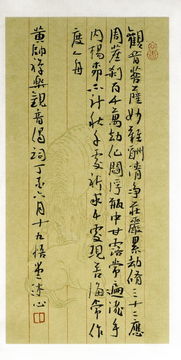 觀音菩薩妙難酬清净莊嚴累劫脩三十二應
周塵刹百千萬劫化閻浮瓶中甘露常遍灑手
内楊枝不計秋千處祈求千處現苦海常作
度人舟
觀音偈詞丁亥六月十九悟